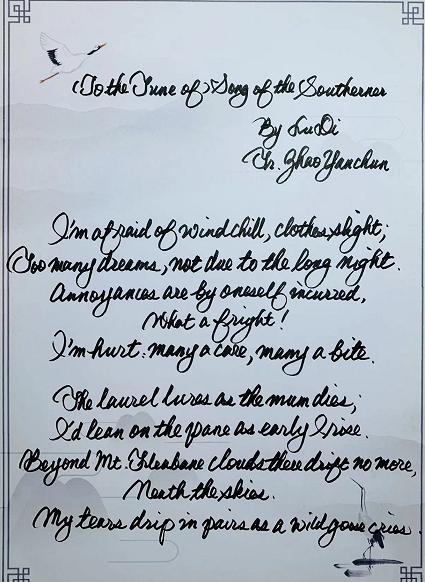 (To the Tune of) Song of the Southerner
By Lu Di
Tr. Zhao Yanchun
I'm afraid of wind chill, clothes slight;
Too many dreams, not due to the long night.
Annoyances are by oneself incurred,
What a fright!
I'm hurt: many a care, many a bite.
The laurel lures as the mum dies;
I'd lean on the pane as early I rise.
Beyond Mt. Fleabane clouds there drift no more,
Neath the skies.
My tears drip in pairs as a wild goose cries.